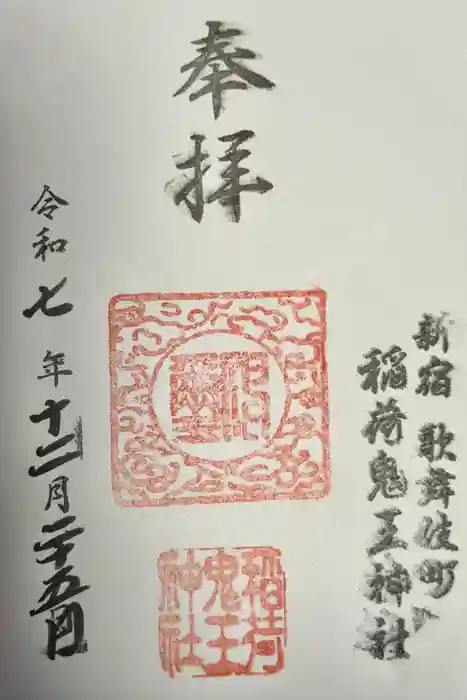 新宿 歌舞伎町
稲荷鬼王神社
奉拝
稲荷
鬼王
神社
令和七年十二月二十五日